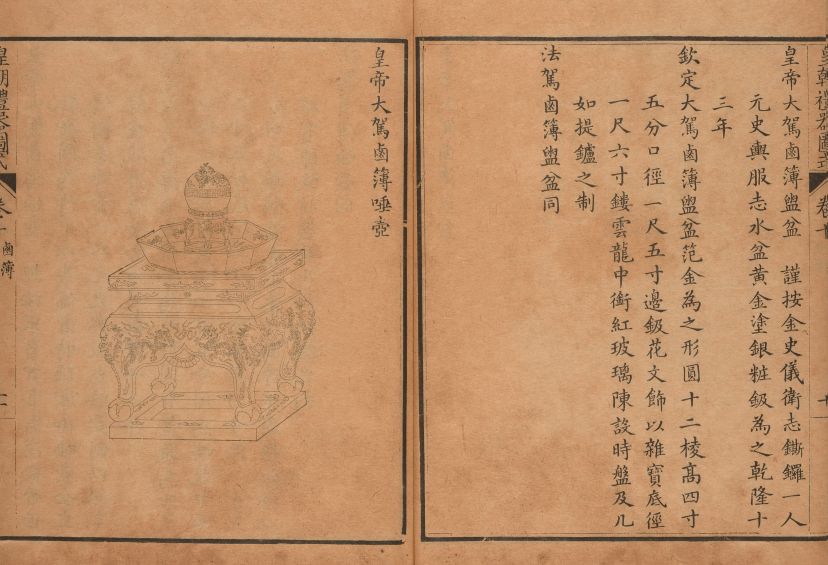 皇朝禮器圖式
皇帝大駕鹵簿盥盆　謹按金史儀衛志鐁鑼一人
元史輿服志水盆黃金塗銀粧鈒為之乾隆十
三年
欽定大駕鹵簿盥盆范金為之形圓十二棱高四寸
五分口徑一尺五寸邊鈒花文飾以雜寶底徑
一尺六寸鏤雲龍中銜紅玻璃陳設時盤及几
如提鑪之制
法駕鹵簿盥盆同
皇帝大駕鹵簿唾壺
皇朝禮器圖式
卷十
鹵簿